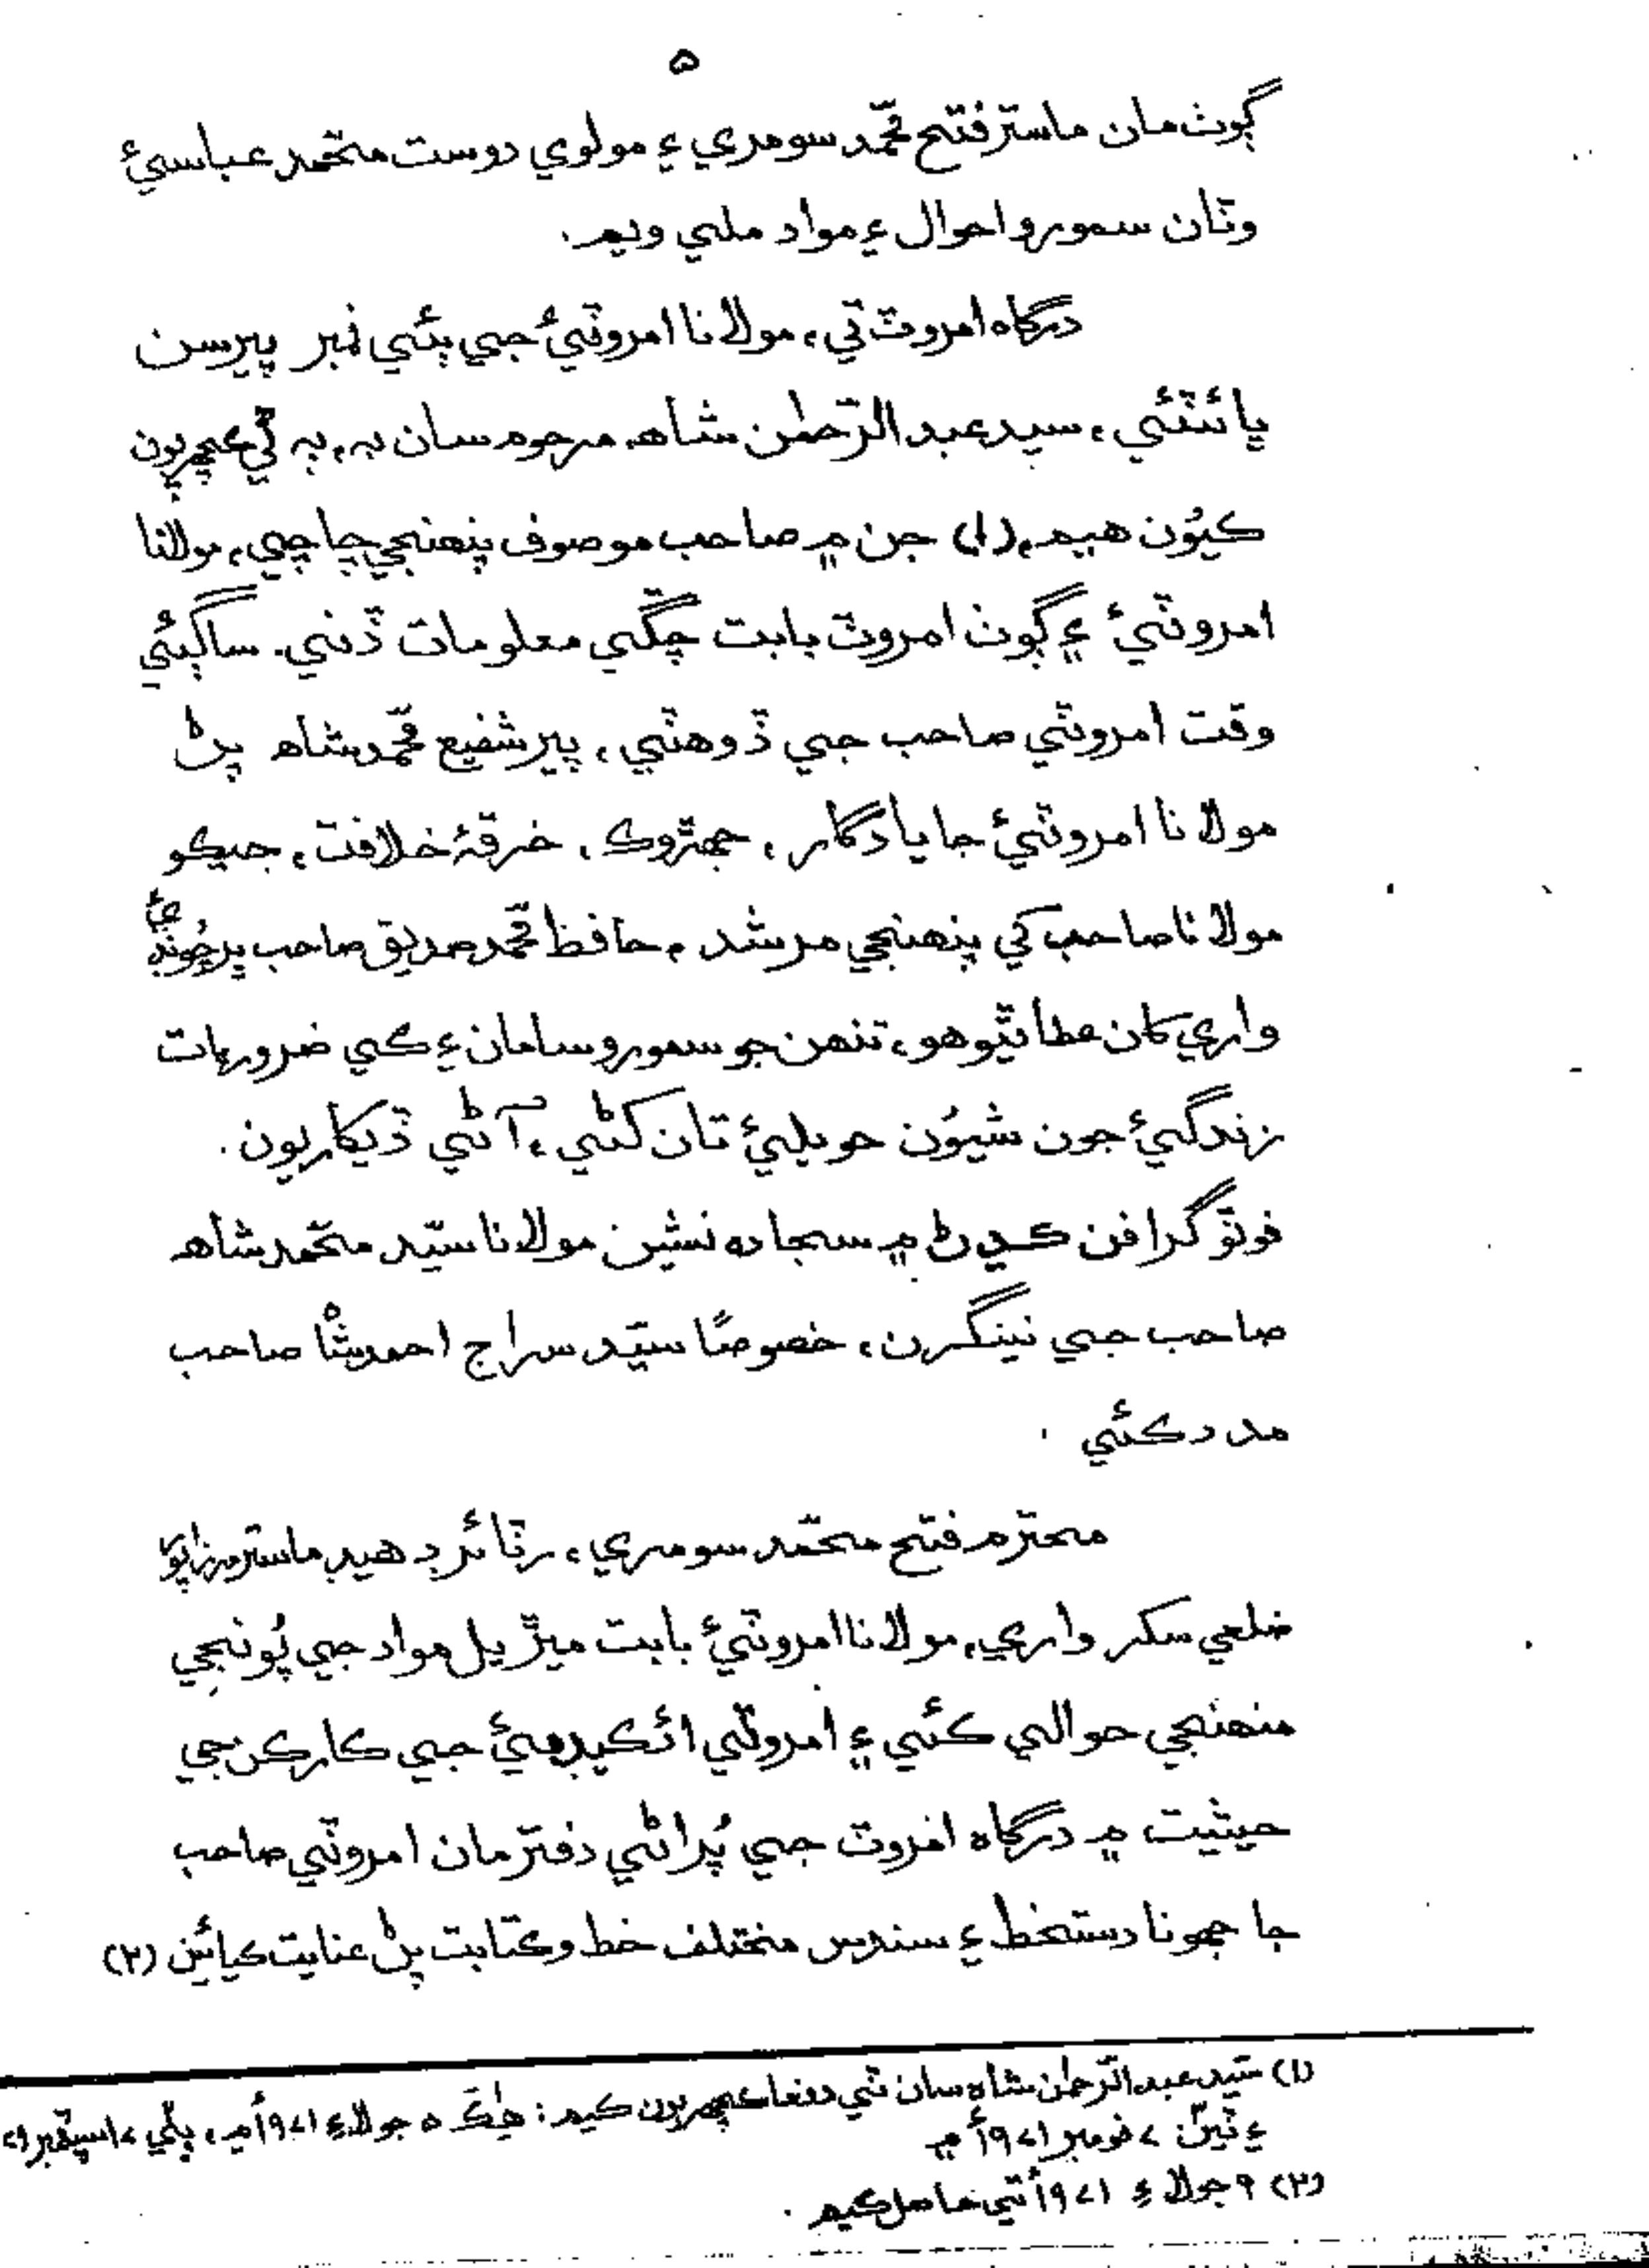 ۵
ڳوٺ مان ماستر فتح محمّد سومري ۽ مولوي دوست محّمد عباسيءَ
وٽان سمورو احوال ۽ مواد ملي ويم.
درگاھ امروٽ تي، مولانا امروٽيءَ جي ٻئي نمبر پيرسن
ڀائٽئي، سيد عبدالرّحمٰن شاھ مرحوم سان بہ، ٻہ ٽي ڪچهريون
ڪيوُن هيم، (۱) جن ۾ صاحب موصوف پنهنجي چاچي، مولانا
امروٽيءَ ۽ ڳوٺ امروٽ بابت چڱي معلومات ڏني. ساڳئي
وقت امروٽي صاحب جي ڏوهٽي، پير شفيع محّمد شاھ پڻ
مولانا امروٽيءَ جا يادگار، جهڙوڪ، خرقۂ خلافت، جيڪو
مولانا صاحب کي پنهنجي مرشد، حافظ محّمد صديق صاحب ڀرچونڊيءَ
واري کان عطا ٿيو هو، تنهن جو سمورو سامان ۽ ڪي ضروريات
زندگيءَ جون شيوُن حويليءَ تان کڻي، آڻي ڏيکاريون.
فوٽو گرافن ڪڍڻ ۾ سجاده نشين مولانا سيّد محّمد شاھ
صاحب جي نينگرن، خصوصًا سيّد سراج احمد شاھ صاحب
مدد ڪئي.
محترم فتح محّمد سومري، رٽائرڊ هيڊ ماستر مرزاپور
ضلعي سکر واري، مولانا امروٽيءَ بابت ميڙيل مواد جي پُونجي
منهنجي حوالي ڪئي ۽ امروٽي اڪيڊميءَ جي ڪارڪن جي
حيثيت ۾ درگاھ امروٽ جي پُراڻي دفتر مان امروٽي صاحب
جا جهونا دستخط ۽ سندس مختلف خط و ڪتابت پڻ عنايت ڪيائين (۲)
(۱) سّيد عبدالرّحمٰن شاھ سان ٽي دفعا ڪچهريون ڪيم: هڪ ۵ جولاءِ ۱۹۷۱ع ۾، ٻي ۷
۽ ٽين ۷ نومبر ۱۹۷۱ع ۾
(۲) ۹ جولاءِ ۱۹۷۱ع تي حاصل ڪيم.